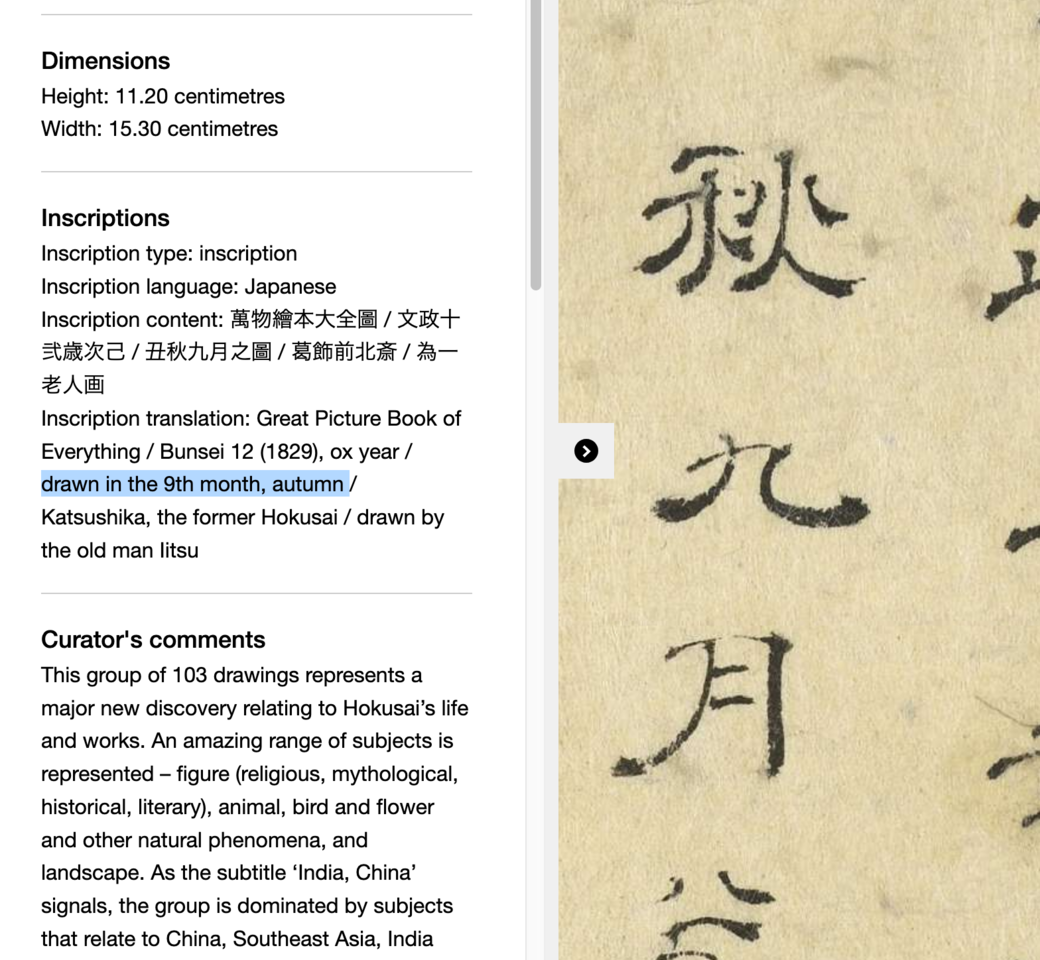 Dimensions
Height: 11.20 centimetres
Width: 15.30 centimetres
Inscriptions
Inscription type: inscription
Inscription language: Japanese
Inscription content: 萬物繪本大全圖 / 文政十
弐歳次己 / 丑秋九月之圖 / 葛飾前北斎 / 為一
老人画
Inscription translation: Great Picture Book of
Everything / Bunsei 12 (1829), ox year /
drawn in the 9th month, autumn /
Katsushika, the former Hokusai / drawn by
the old man Iitsu
Curator's comments
This group of 103 drawings represents a
major new discovery relating to Hokusai’s life
and works. An amazing range of subjects is
represented – figure (religious, mythological,
historical, literary), animal, bird and flower
and other natural phenomena, and
landscape. As the subtitle ‘India, China’
signals, the group is dominated by subjects
that relate to China, Southeast Asia, India
秋九月